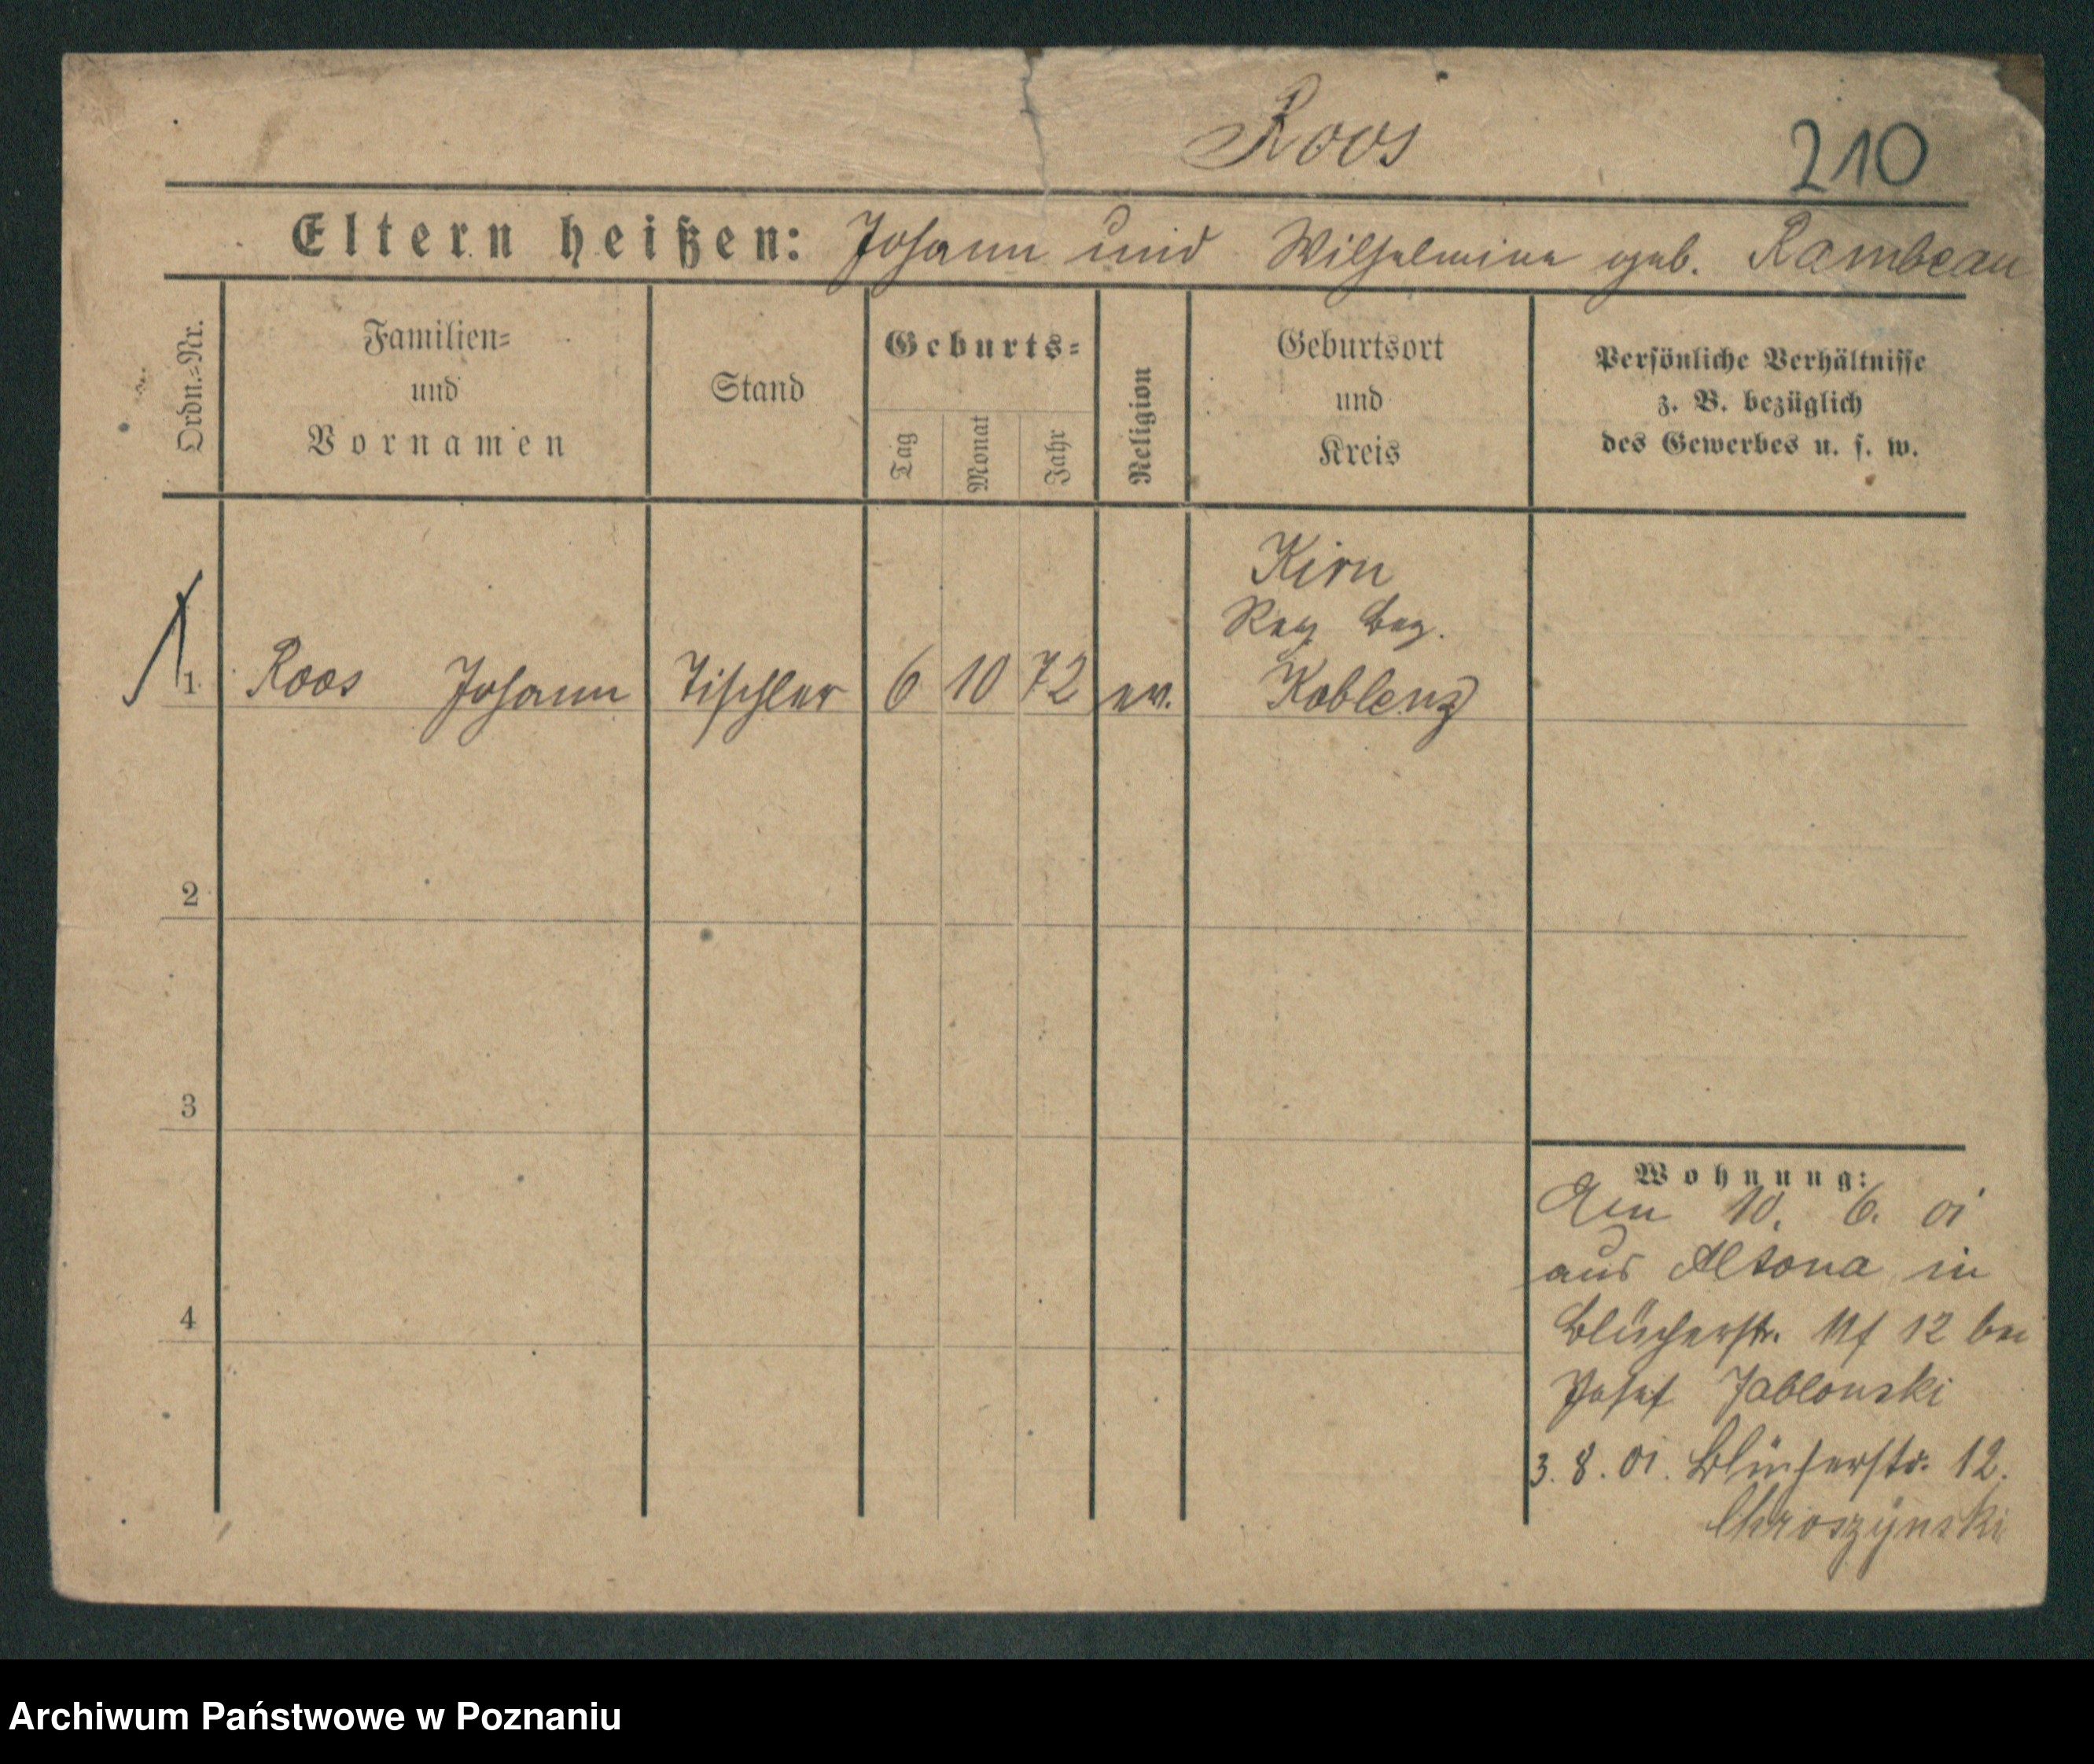 Roos
210
Eltern heißen: Johann und Wilhelmine geb. Rambeau
Ordn.-Nr.
Familien-
und
Vornamen
Stand
Geburts-
Tag
Monat
Jahr
Religion
Geburtsort
und
Kreis
Persönliche Verhältnisse
z. B. bezüglich
des Gewerbes u. s. w.
Kirn
Reg Bez.
1 Roos Johann Tischler 6 10 72 ev. Koblenz
2
3
4
Wohnung:
Am 10. 6. 01
aus Altona in
Blücherstr. 12 bei
Josef Jablonski
3. 8. 01. Blücherstr. 12.
Chroszynski
Archiwum Państwowe w Poznaniu